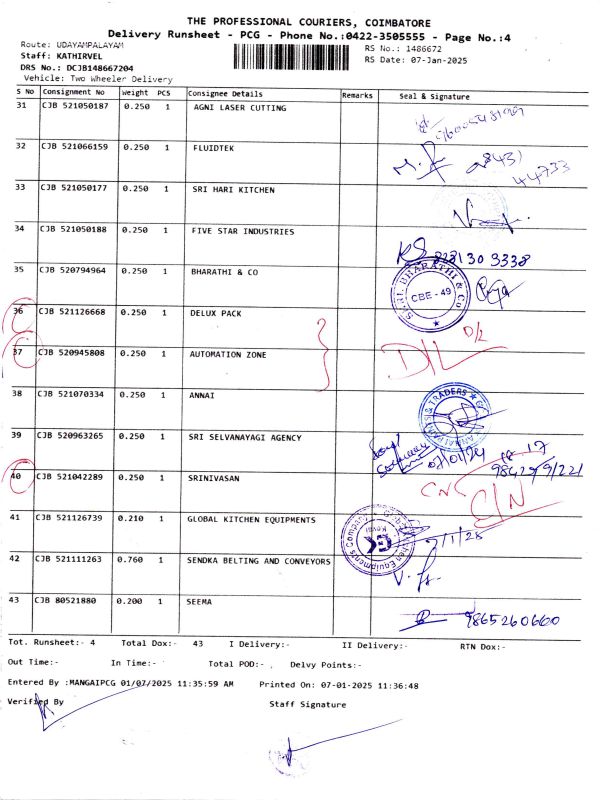 THE PROFESSIONAL COURIERS, COIMBATORE
Delivery Runsheet - PCG - Phone No.:0422-3505555 - Page No.:4
Route: UDAYAMPALAYAM
RS No.: 1486672
Staff: KATHIRVEL
RS Date: 07-Jan-2025
DRS No.: DCJB148667204
Vehicle: Two Wheeler Delivery
S No Consignment No Weight PCS Consignee Details Remarks Seal & Signature
31 CJB 521050187 0.250 1 AGNI LASER CUTTING
32 CJB 521066159 0.250 1 FLUIDTEK
44733
33 CJB 521050177 0.250 1 SRI HARI KITCHEN
34 CJB 521050188 0.250 1 FIVE STAR INDUSTRIES
35 CJB 520794964 0.250 1 BHARATHI & CO
SHRI. BHARATHI & CO
CBE - 49
36 CJB 521126668 0.250 1 DELUX PACK
D/L
37 CJB 520945808 0.250 1 AUTOMATION ZONE
D/L
38 CJB 521070334 0.250 1 ANNAI
39 CJB 520963265 0.250 1 SRI SELVANAYAGI AGENCY
40 CJB 521042289 0.250 1 SRINIVASAN
CNC
41 CJB 521126739 0.210 1 GLOBAL KITCHEN EQUIPMENTS
Global Kitchen Equipments Company
GK
Kovai
42 CJB 521111263 0.760 1 SENDKA BELTING AND CONVEYORS
43 CJB 80521880 0.200 1 SEEMA
9865260660
Tot. Runsheet:- 4 Total Dox:- 43 I Delivery:- II Delivery:- RTN Dox:-
Out Time:- In Time:- Total POD:- Delvy Points:-
Entered By :MANGAIPCG 01/07/2025 11:35:59 AM Printed On: 07-01-2025 11:36:48
Verified By Staff Signature